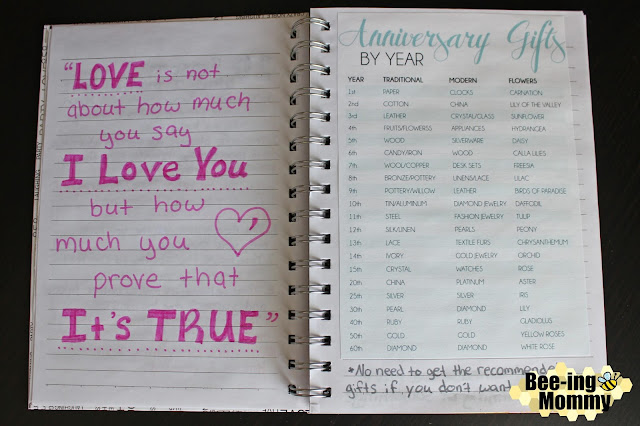 "LOVE is not
about how much
you say
I Love You
but how
much you
prove that
It's TRUE"
Anniversary Gifts
BY YEAR
YEAR TRADITIONAL MODERN FLOWERS
1st PAPER CLOCKS CARNATION
2nd COTTON CHINA LILY OF THE VALLEY
3rd LEATHER CRYSTAL/GLASS SUNFLOWER
4th FRUITS/FLOWERSS APPLIANCES HYDRANGEA
5th WOOD SILVERWARE DAISY
6th CANDY/IRON WOOD CALLA LILIES
7th WOOL/COPPER DESK SETS FREESIA
8th BRONZE/POTTERY LINENS/LACE LILAC
9th POTTERY/WILLOW LEATHER BIRDS OF PARADISE
10th TIN/ALUMINUM DIAMOND JEWELRY DAFFODIL
11th STEEL FASHION JEWELRY TULIP
12th SILK/LINEN PEARLS PEONY
13th LACE TEXTILE FURS CHRYSANTHEMUM
14th IVORY GOLD JEWELRY ORCHID
15th CRYSTAL WATCHES ROSE
20th CHINA PLATINUM ASTER
25th SILVER SILVER IRIS
30th PEARL DIAMOND LILY
40th RUBY RUBY GLADIOLUS
50th GOLD GOLD YELLOW ROSES
60th DIAMOND DIAMOND WHITE ROSE
*No need to get the recommended
gifts if you don't want
Bee-ing
Mommy